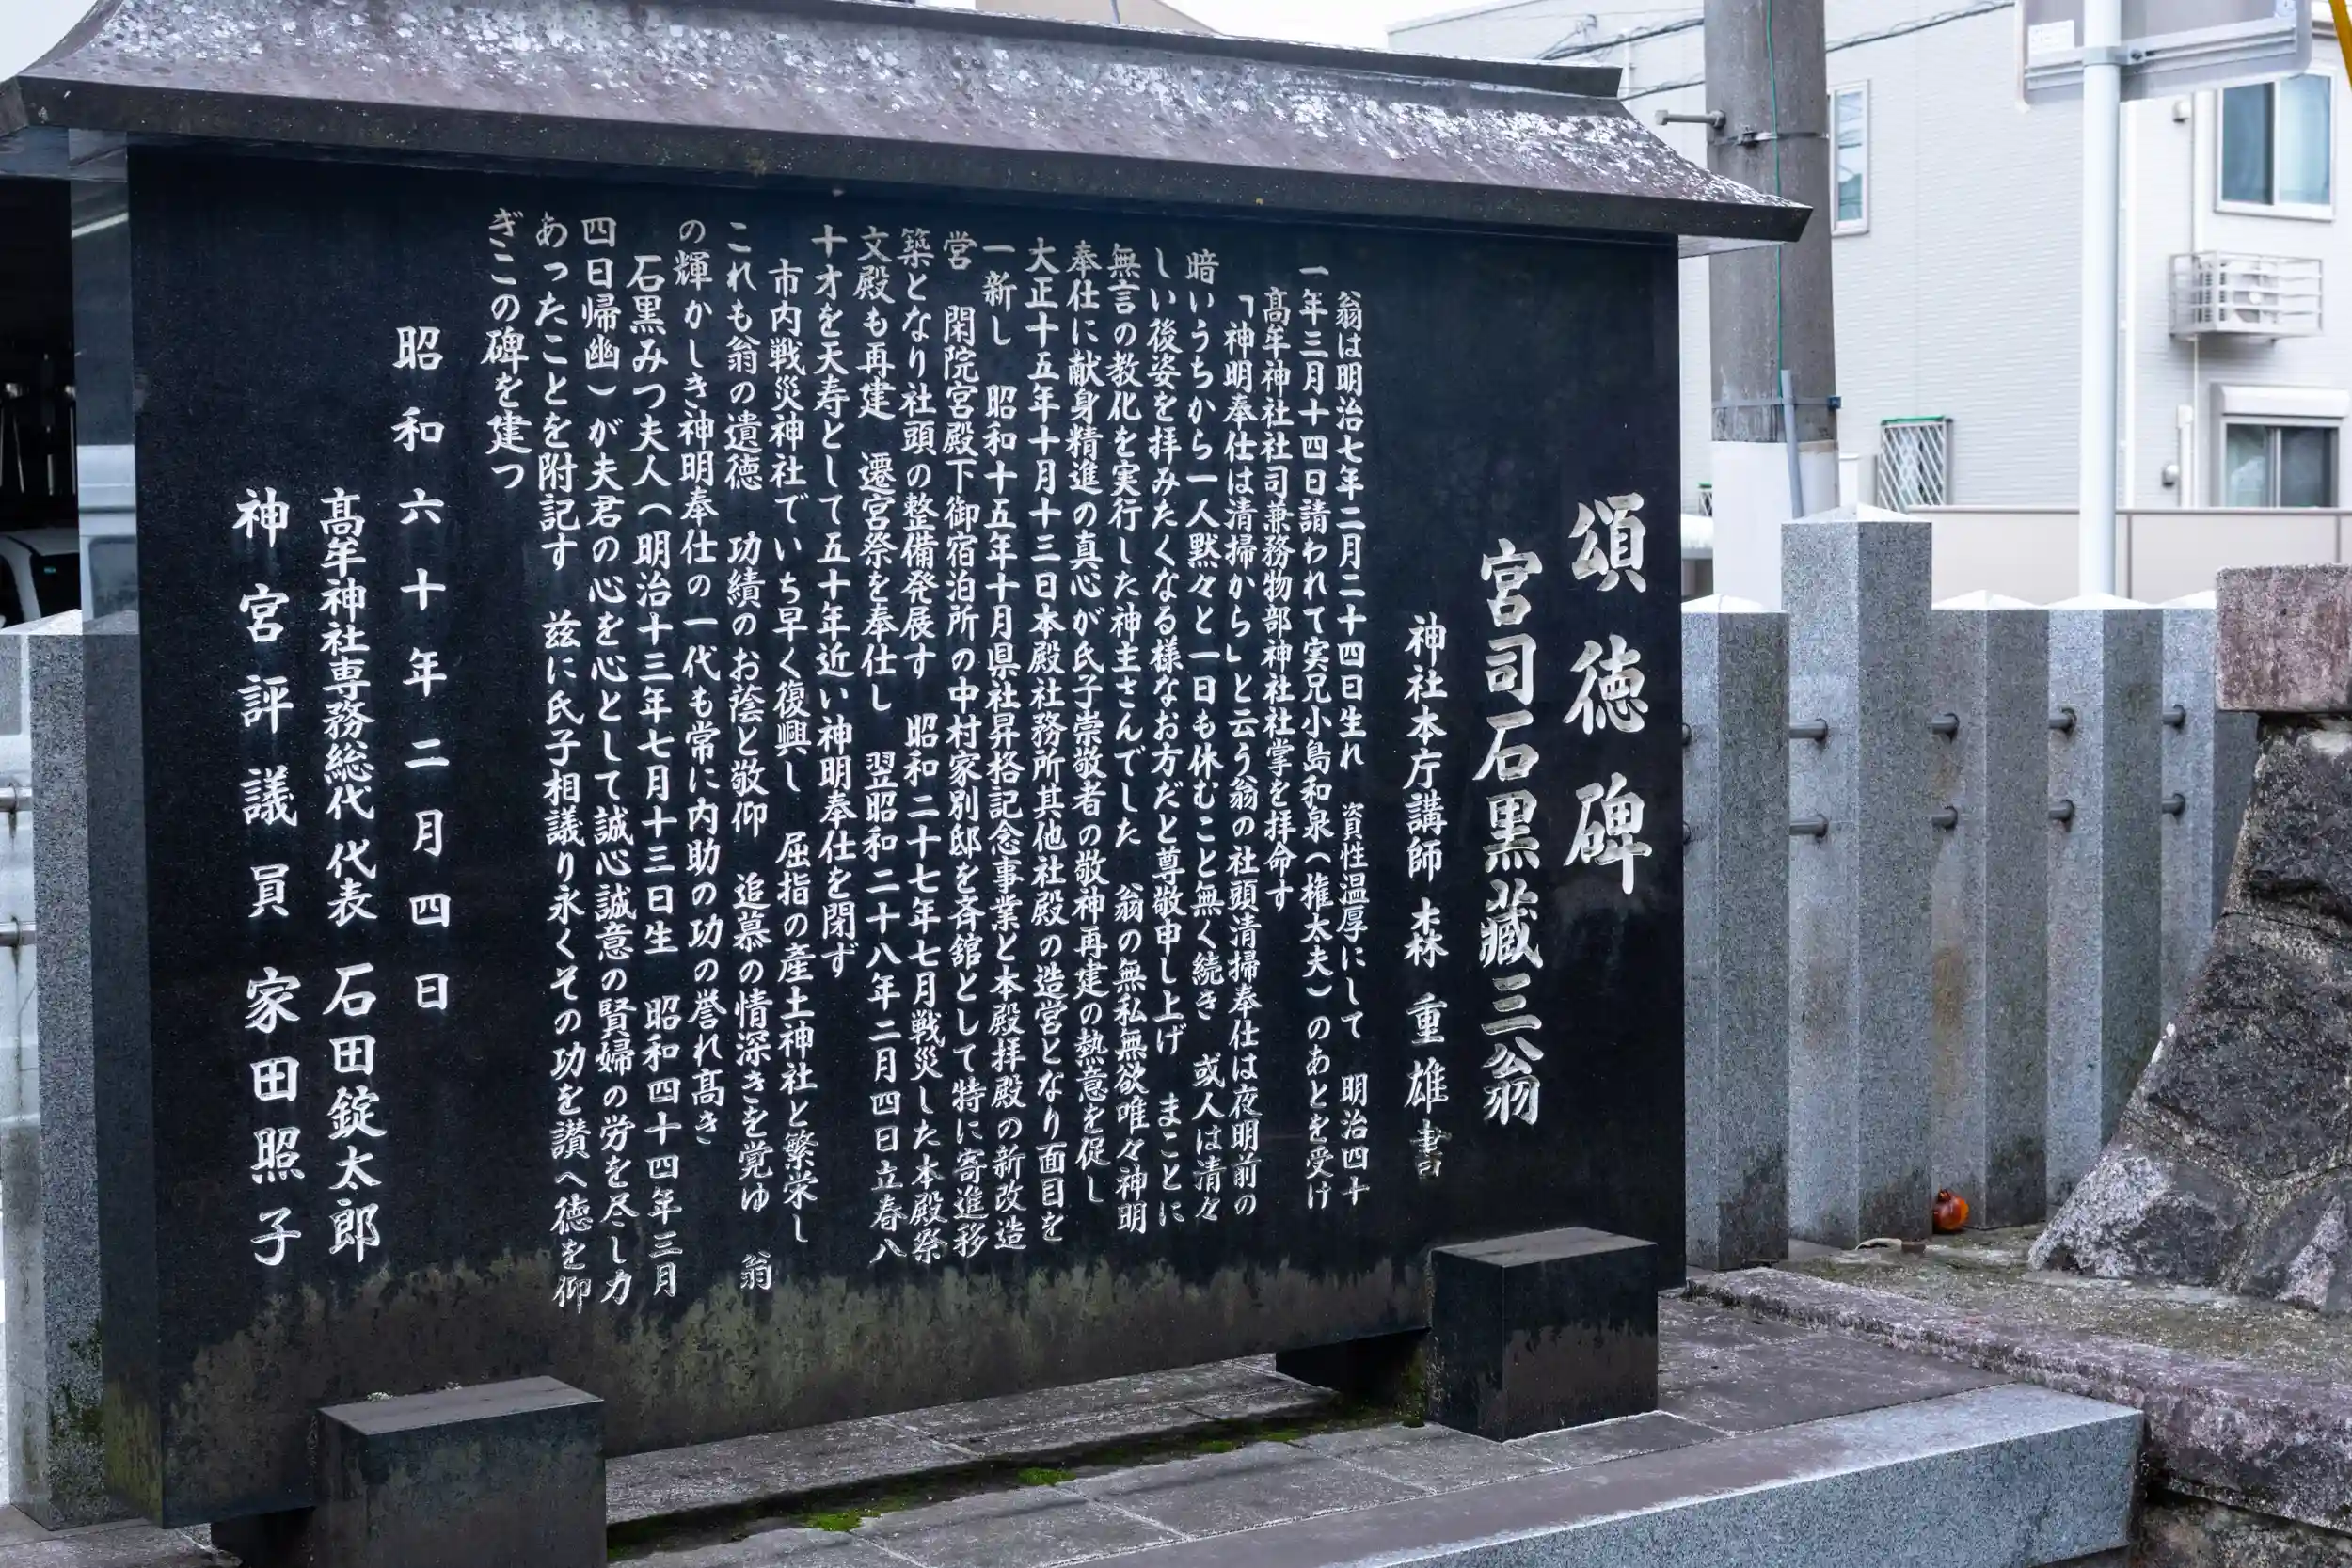 頌徳碑
宮司石黒藏三翁
神社本庁講師 森重雄書
翁は明治七年二月二十四日生れ 資性温厚にして 明治四十
一年三月十四日請われて実兄小島和泉(権太夫)のあとを受け
髙牟神社社司兼務物部神社社掌を拝命す
「神明奉仕は清掃から」と云う翁の社頭清掃奉仕は夜明前の
暗いうちから一人黙々と一日も休むこと無く続き 或人は清々
しい後姿を拝みたくなる様なお方だと尊敬申し上げ まことに
無言の教化を実行した神主さんでした 翁の無私無欲唯々神明
奉仕に献身精進の真心が氏子崇敬者の敬神再建の熱意を促し
大正十五年十月十三日本殿社務所其他社殿の造営となり面目を
一新し 昭和十五年十月県社昇格記念事業と本殿拝殿の新改造
営 閑院宮殿下御宿泊所の中村家別邸を斉舘として特に寄進移
築となり社頭の整備発展す 昭和二十七年七月戦災した本殿祭
文殿も再建 遷宮祭を奉仕し 翌昭和二十八年二月四日立春八
十才を天寿として五十年近い神明奉仕を閉ず
市内戦災神社でいち早く復興し 屈指の産土神社と繁栄し
これも翁の遺徳 功績のお蔭と敬仰 追慕の情深きを覚ゆ 翁
の輝かしき神明奉仕の一代も常に内助の功の誉れ髙き
石黒みつ夫人(明治十三年七月十三日生 昭和四十四年三月
四日帰幽)が夫君の心を心として誠心誠意の賢婦の労を尽し力
あったことを附記す 茲に氏子相議り永くその功を讃へ徳を仰
ぎこの碑を建つ
昭和六十年二月四日
髙牟神社専務総代代表 石田錠太郎
神宮評議員 家田照子